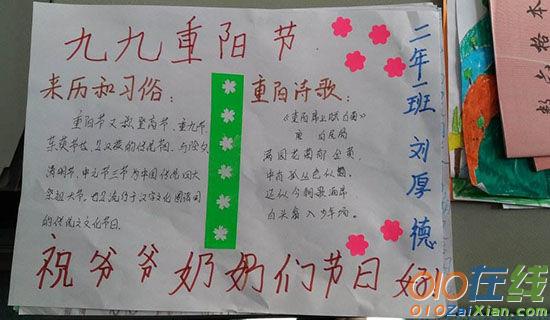 九九重阳节
来历和习俗：
重阳节又称登高节、重九节、
茱萸节
清明节、中元节三节为中国传统四大
祭祖大节。也是流行于汉字文化圈诸国
的传统文化节日。
重阳诗歌：
唐
满园花菊郁金黄，
中有孤丛色似霜。
还似今朝歌酒席
白头翁入少年场。
二年一班 刘厚德
祝爷爷奶奶们节日好
数
格本
010在线
010ZaiXian.com